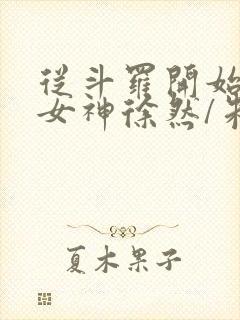 從斗羅開始
女神徐然/朱
夏木果子